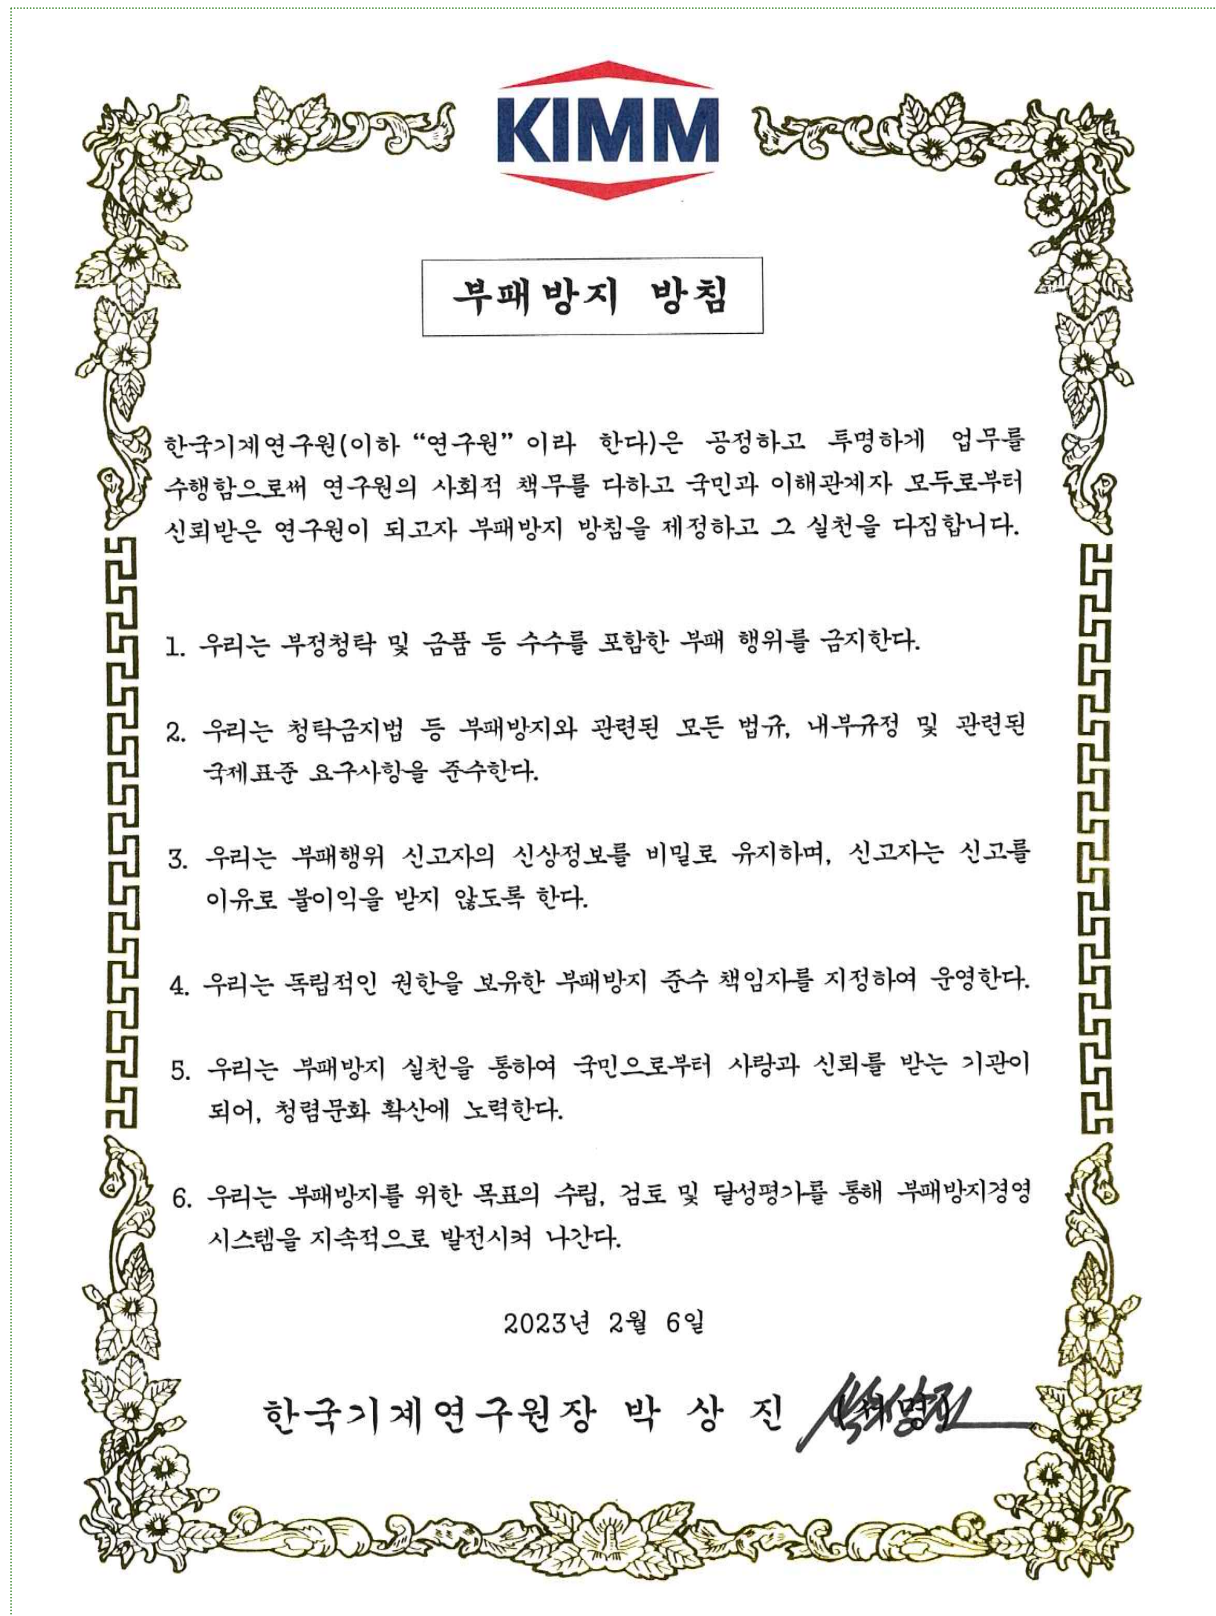 KIMM
부패방지 방침
한국기계연구원(이하 “연구원” 이라 한다)은 공정하고 투명하게 업무를
수행함으로써 연구원의 사회적 책무를 다하고 국민과 이해관계자 모두로부터
신뢰받은 연구원이 되고자 부패방지 방침을 제정하고 그 실천을 다짐합니다.
1. 우리는 부정청탁 및 금품 등 수수를 포함한 부패 행위를 금지한다.
2. 우리는 청탁금지법 등 부패방지와 관련된 모든 법규, 내부규정 및 관련된
국제표준 요구사항을 준수한다.
3. 우리는 부패행위 신고자의 신상정보를 비밀로 유지하며, 신고자는 신고를
이유로 불이익을 받지 않도록 한다.
4. 우리는 독립적인 권한을 보유한 부패방지 준수 책임자를 지정하여 운영한다.
5. 우리는 부패방지 실천을 통하여 국민으로부터 사랑과 신뢰를 받는 기관이
되어, 청렴문화 확산에 노력한다.
6. 우리는 부패방지를 위한 목표의 수립, 검토 및 달성평가를 통해 부패방지경영
시스템을 지속적으로 발전시켜 나간다.
2023년 2월 6일
한국기계연구원장 박 상 진 (서명)